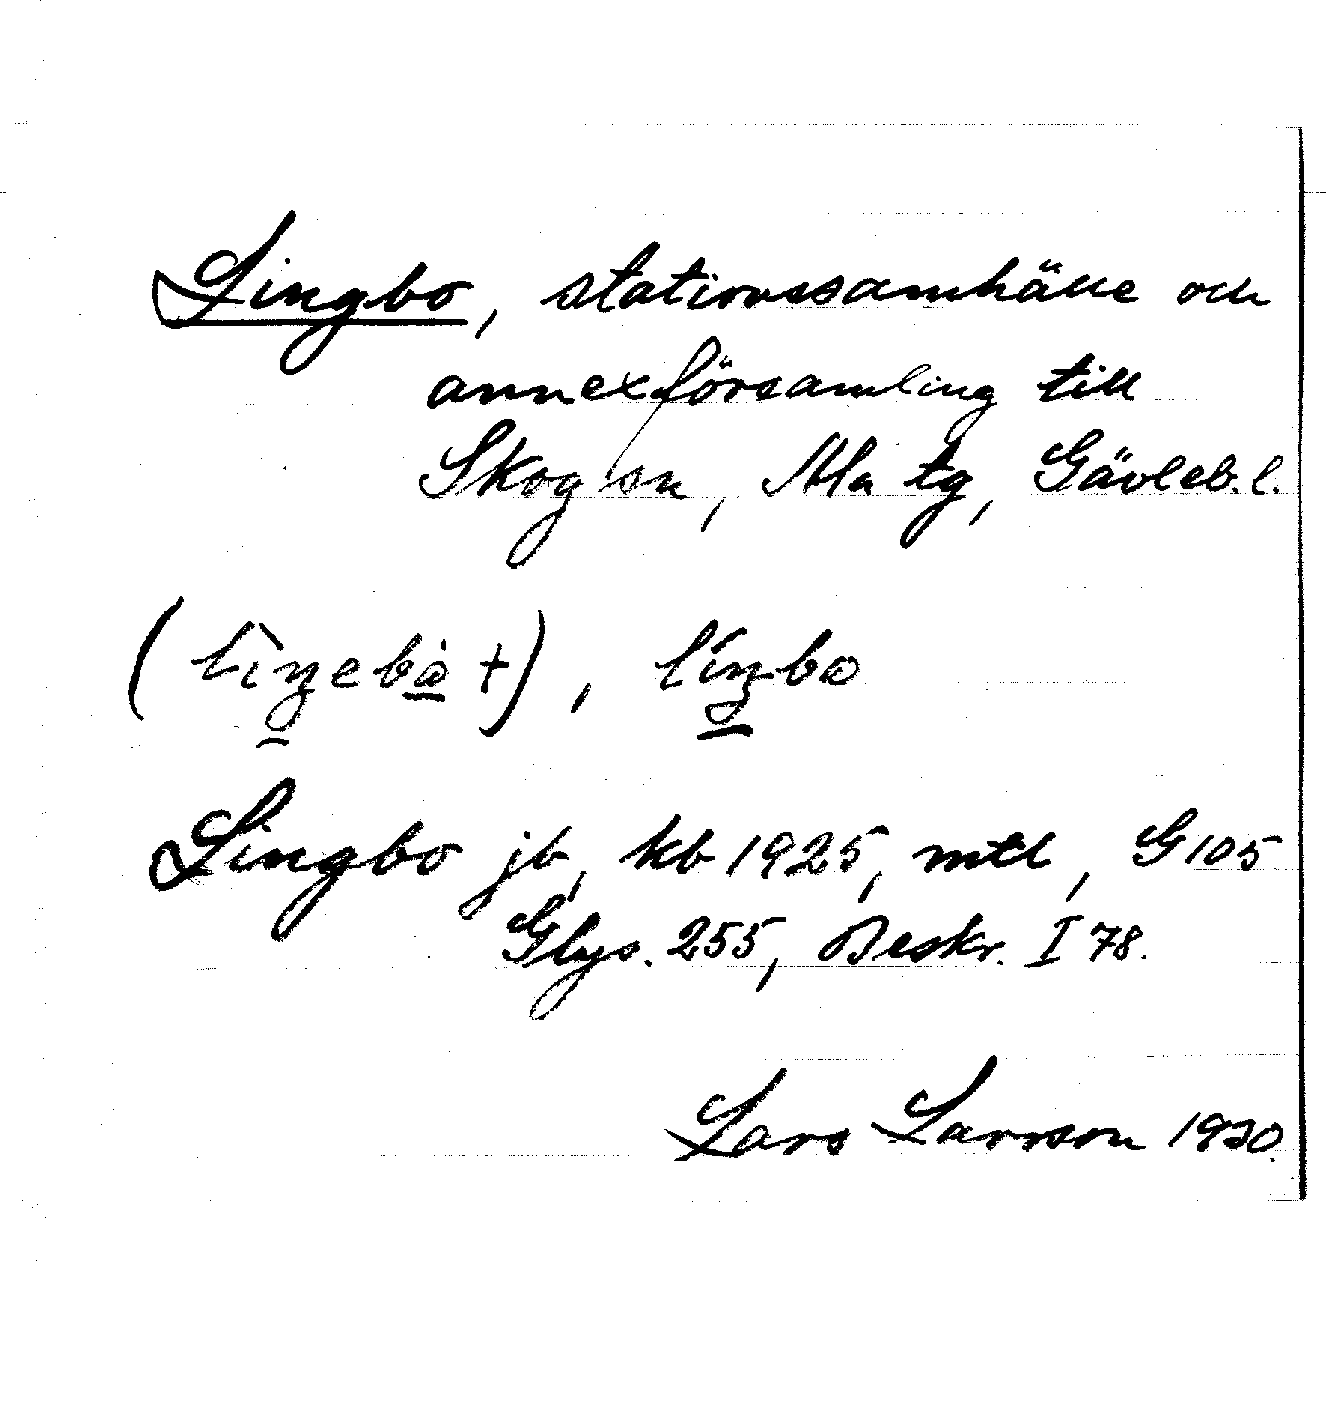 Lingbo, stationssamhälle och
annexförsamling till
Skog sn, Ala tg, Gävleb. l.
(lìŋebå̀ +), líŋbo
Lingbo jb, kb 1925, mtl, G 105
Glys. 255, Beskr. I 78.
Lars Larsson 1930.